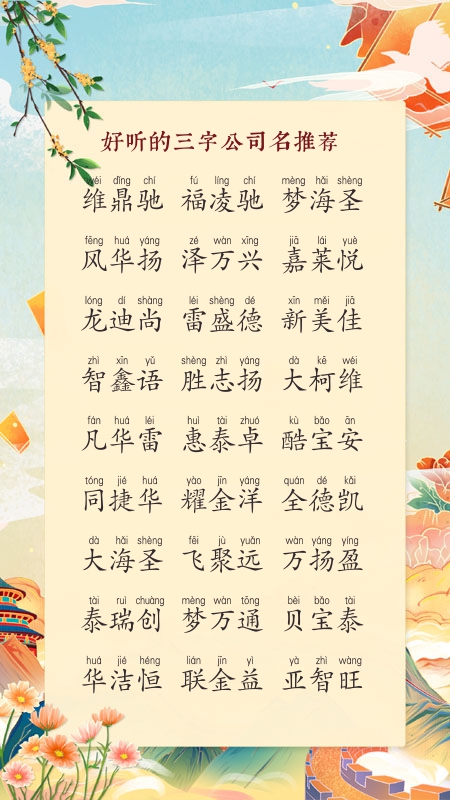 好听的三字公司名推荐
wéi dǐng chí fú líng chí mèng hǎi shèng
维鼎驰 福凌驰 梦海圣
fēng huá yáng zé wàn xīng jiā lái yuè
风华扬 泽万兴 嘉莱悦
lóng dí shàng léi shèng dé xīn měi jiā
龙迪尚 雷盛德 新美佳
zhì xīn yǔ shèng zhì yáng dà kē wéi
智鑫语 胜志扬 大柯维
fán huá léi huì tài zhuó kù bǎo ān
凡华雷 惠泰卓 酷宝安
tóng jié huá yào jīn yáng quán dé kǎi
同捷华 耀金洋 全德凯
dà hǎi shèng fēi jù yuǎn wàn yáng yíng
大海圣 飞聚远 万扬盈
tài ruì chuàng mèng wàn tōng bèi bǎo tài
泰瑞创 梦万通 贝宝泰
huá jié héng lián jīn yì yà zhì wàng
华洁恒 联金益 亚智旺